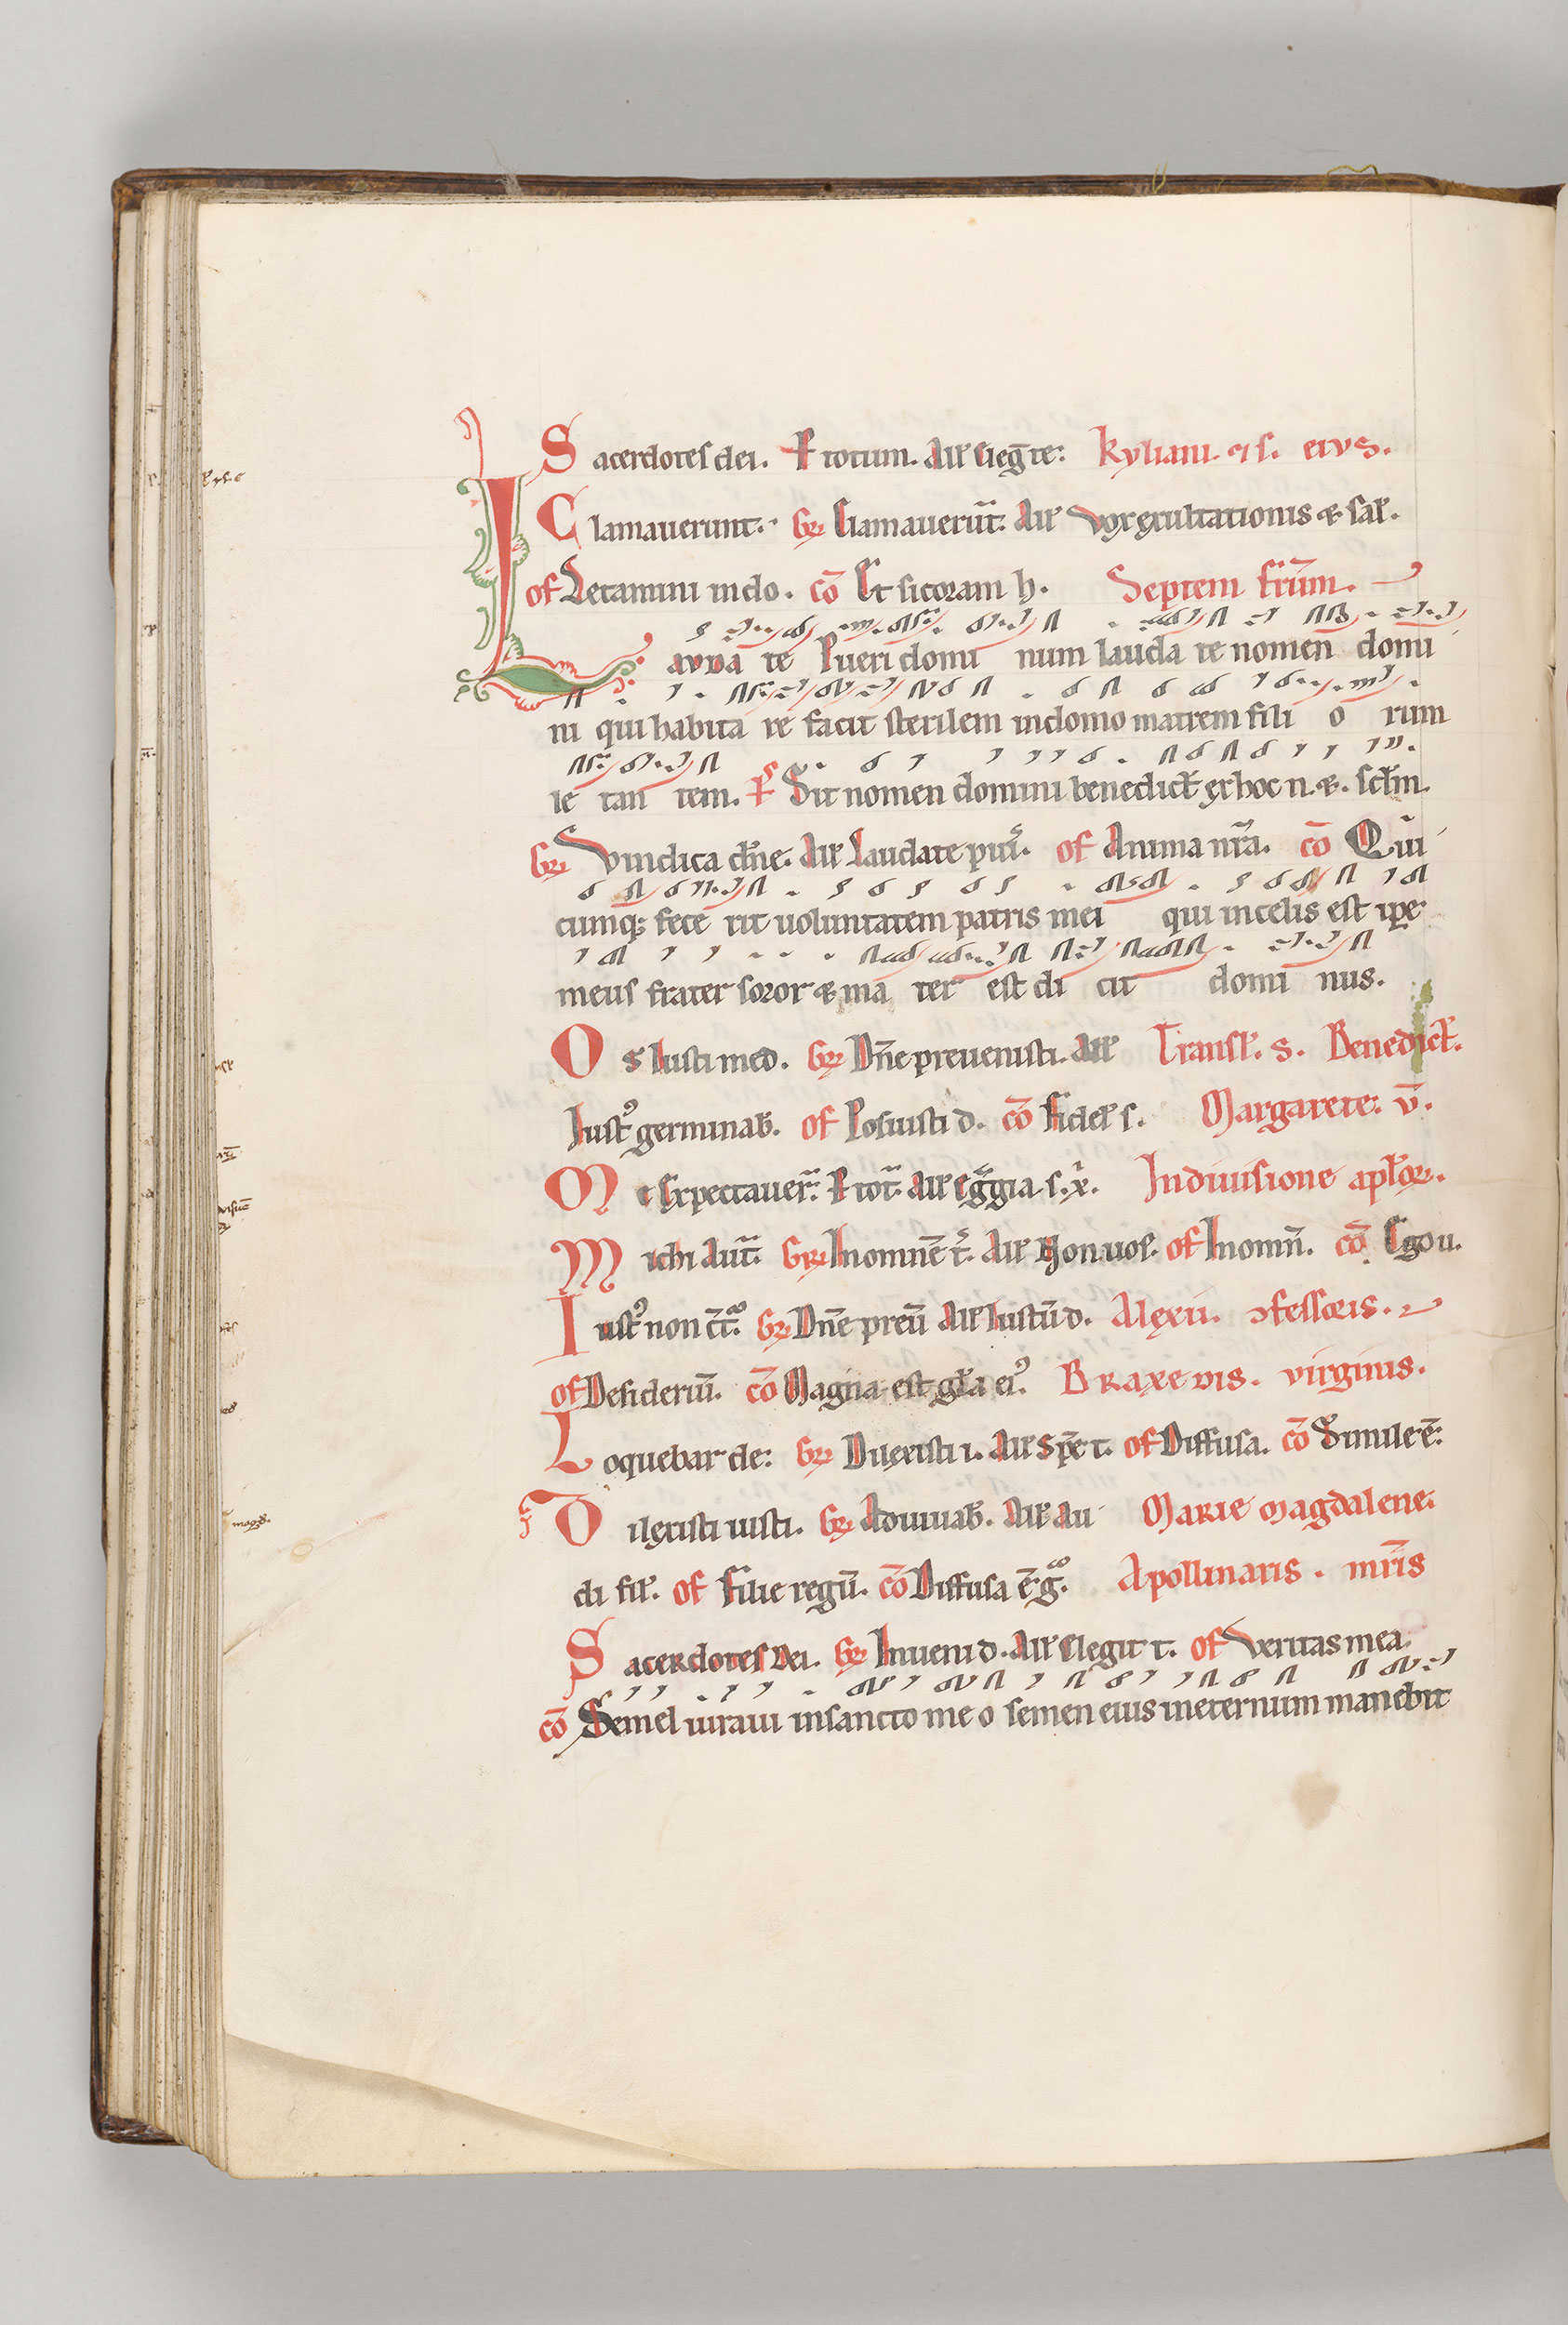 Sacerdotes dei. P totum. All Elegr̄te: kyliani. ⁊ s. eius.
Clamauerunt. Gr̄ Clamauerūt. All Vox exultationis & sal̄.
of Letamini in do. cō Et si coram h. Septem fr̄um.
Lauda te Pueri domi num lauda te nomen domi
ni qui habita re facit sterilem in domo matrem fili o rum
le tan tem. Ps Sit nomen domini benedict̄ ex hoc n. &. scl̄m.
Gr̄ Vindica dn̄e. All Laudate pu. of Anima nr̄a. cō Qui
cumq; fece rit uoluntatem patris mei qui in celis est ip̄e
meus frater soror & ma ter est di cit domi nus.
Os Iusti med. Gr̄ Dn̄e preuenisti. All Transl̄. s. Benedict̄.
Iustꝰ germinab̄. of Posuisti d. cō Fidel̄ s. Margarete. v̄.
Me Expectauer̄. P tot̄. All Eg̃gia s. x. In diuisione apl̄oꝝ.
Michi aut̄. Gr̄ In omnē t̄. All Non uos. of In omn̄. cō Ego u.
Iustꝰ non c̄t. Gr̄ Dn̄e preu̅ All Iustū d. Alexii. ꝯfessoris.
of Desideriū. cō Magna est gl̄a eiꝰ. Braxedis. virginis.
Loquebar de: Gr̄ Dilexisti i. All Spē t. of Diffusa. cō Simile ē:
Dilexisti iusti. Gr̄ Adiuuab̄. All Au Marie magdalene.
di fil̄. of Filie regū. cō Diffusa ē g̃. Apollinaris. mr̄is
Sacerdotes dei. Gr̄ Inueni d. All Elegit t. of Veritas mea.
cō Semel iuraui in sancto me o semen eius in eternum manebit